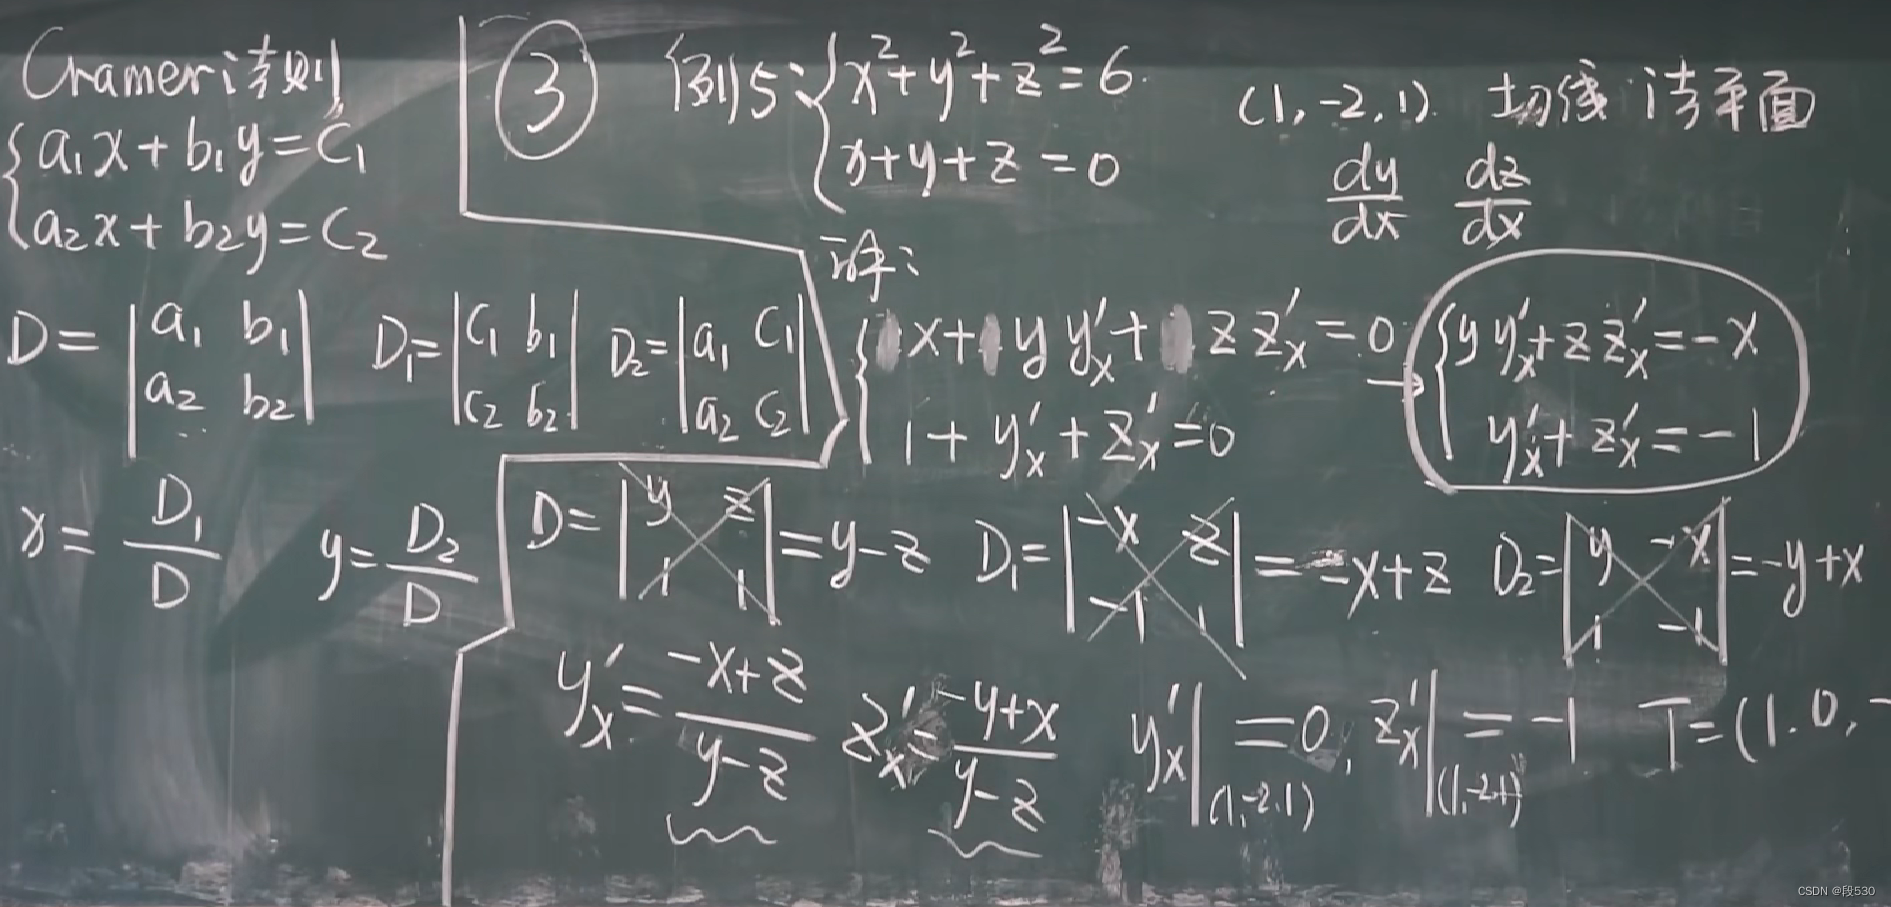 Cramer法则
{ a₁x + b₁y = c₁
{ a₂x + b₂y = c₂
D = | a₁ b₁ | D₁ = | c₁ b₁ | D₂ = | a₁ c₁ |
| a₂ b₂ | | c₂ b₂ | | a₂ c₂ |
x = D₁/D y = D₂/D
③ 例5: { x² + y² + z² = 6
{ x + y + z = 0
(1, -2, 1) 切线 法平面
dy/dx dz/dx
解:
{ x + y y'ₓ + z z'ₓ = 0
{ 1 + y'ₓ + z'ₓ = 0
→ { y y'ₓ + z z'ₓ = -x
{ y'ₓ + z'ₓ = -1
D = | y z | = y - z D₁ = | -x z | = -x + z D₂ = | y -x | = -y + x
| 1 1 | | -1 1 | | 1 -1 |
y'ₓ = (-x+z)/(y-z) z'ₓ = (-y+x)/(y-z) y'ₓ|(1,-2,1) = 0, z'ₓ|(1,-2,1) = -1 T = (1. 0, -
CSDN @段530